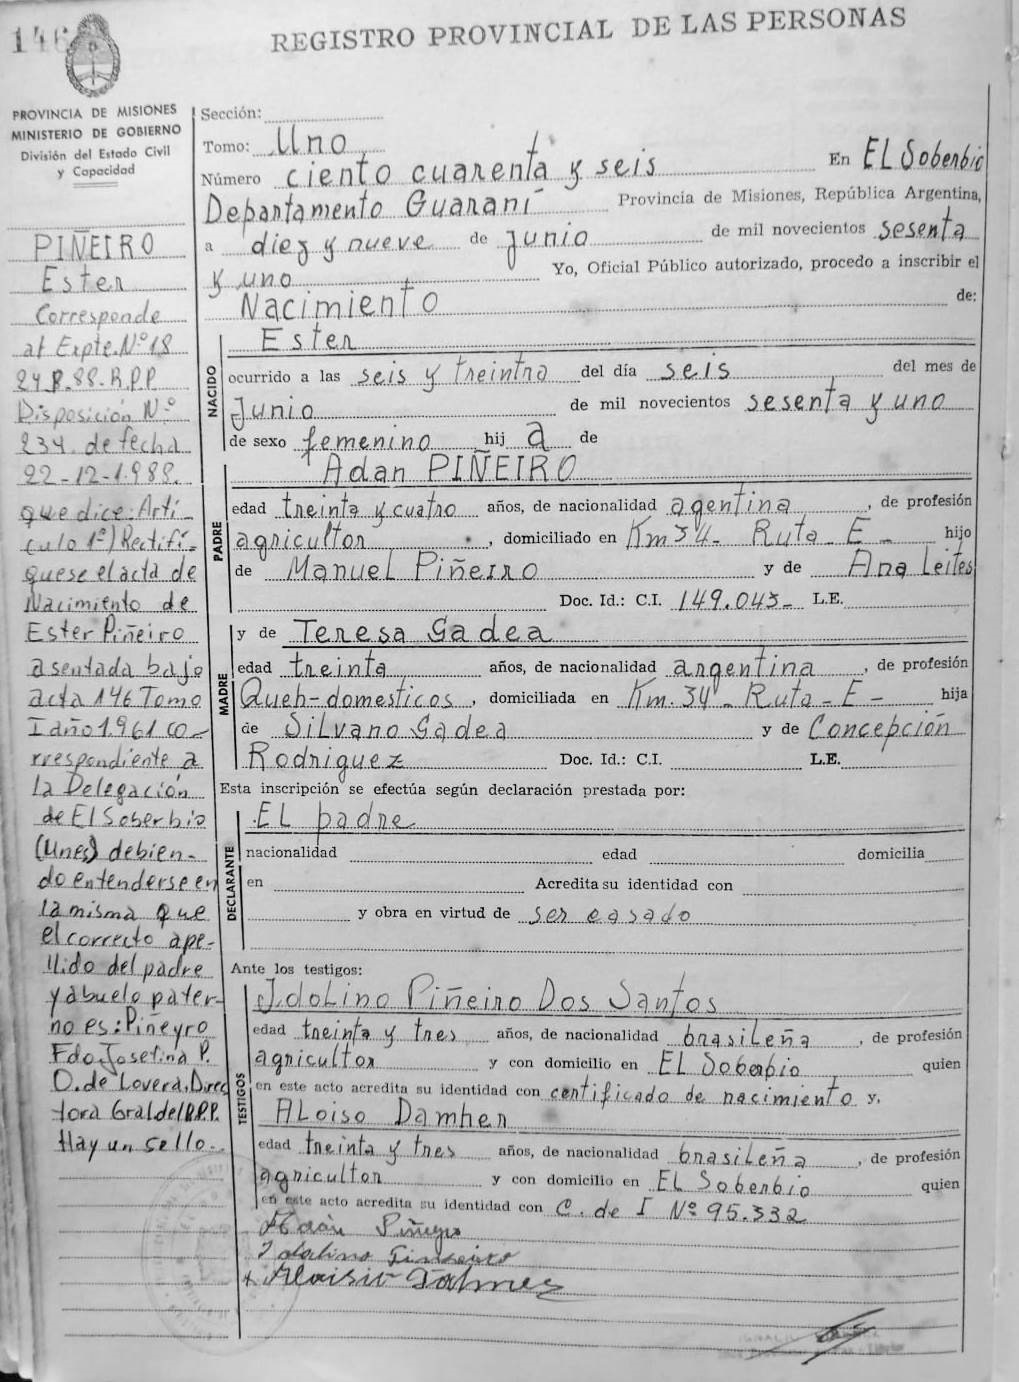 146
REGISTRO PROVINCIAL DE LAS PERSONAS
PROVINCIA DE MISIONES
MINISTERIO DE GOBIERNO
División del Estado Civil
y Capacidad
PIÑEIRO
Ester
Corresponde
al Expte. Nº 18
24 P. 88. R.P.P
Disposición Nº
234. de fecha
22-12-1.988.
que dice: Artí-
culo 1º) Rectifí-
quese el acta de
Nacimiento de
Ester Piñeiro
asentada bajo
acta 146 Tomo
I año 1.961 co-
rrespondiente a
la Delegación
de El Soberbio
(Unes) debien-
do entenderse en
la misma que
el correcto ape-
llido del padre
y abuelo pater-
no es: Piñeyro
Fdo. Josefina P.
O. de Lovera. Direc
tora Gral del R.P.P.
Hay un sello.-
Sección:
Tomo: Uno
Número ciento cuarenta y seis En EL Soberbio
Departamento Guaraní Provincia de Misiones, República Argentina,
a diez y nueve de Junio de mil novecientos sesenta
y uno Yo, Oficial Público autorizado, procedo a inscribir el
Nacimiento de:
NACIDO
Ester
ocurrido a las seis y treintra del día seis del mes de
Junio de mil novecientos sesenta y uno
de sexo femenino hij a de
PADRE
Adan PIÑEIRO
edad treinta y cuatro años, de nacionalidad agentina, de profesión
agricultor, domiciliado en Km 34- Ruta- E- hijo
de Manuel Piñeiro y de Ana Leites
Doc. Id.: C.I. 149.043- L.E.
MADRE
y de Teresa Gadea
edad treinta años, de nacionalidad argentina, de profesión
Queh-domesticos, domiciliada en Km. 34- Ruta- E- hija
de Silvano Gadea y de Concepción
Rodriguez Doc. Id.: C.I. L.E.
Esta inscripción se efectúa según declaración prestada por:
DECLARANTE
EL padre
nacionalidad edad domicilia
en Acredita su identidad con
y obra en virtud de ser casado
Ante los testigos:
TESTIGOS
Idolino Piñeiro Dos Santos
edad treinta y tres años, de nacionalidad brasileña, de profesión
agricultor y con domicilio en EL Soberbio quien
en este acto acredita su identidad con certificado de nacimiento y,
ALoiso Damhen
edad treinta y tres años, de nacionalidad brasileña, de profesión
agricultor y con domicilio en EL Soberbio quien
en este acto acredita su identidad con C. de I Nº 95.332
Adán Piñeyro